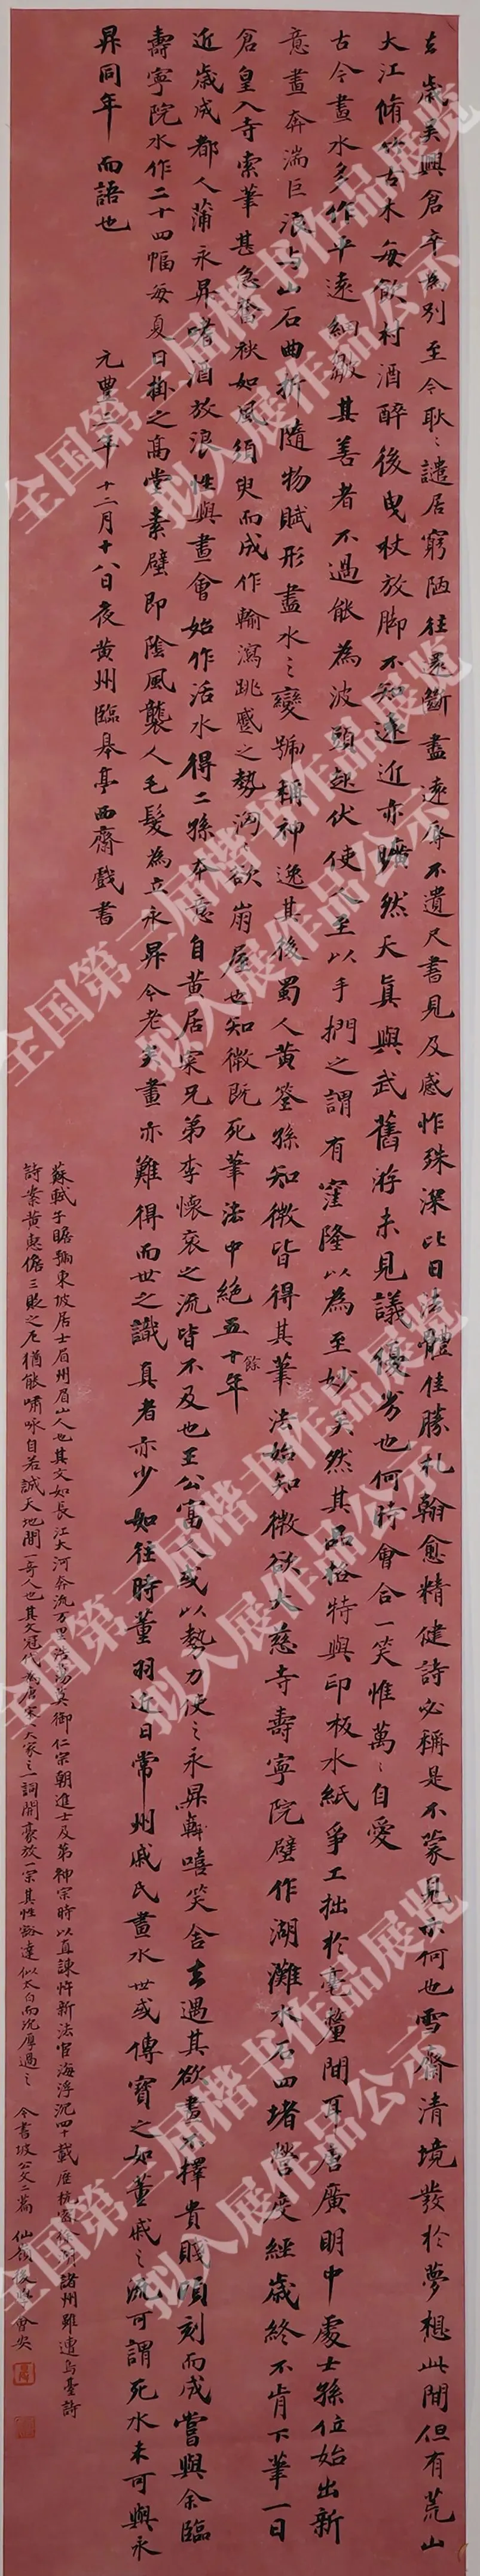 去歲吴興倉卒爲別至今耿〻譴居窮陋往還斷盡遠辱不遺尺書見及感怍殊深比日法體佳勝札翰愈精健詩必稱是不蒙見示何也雪齋清境發於夢想此間但有荒山
大江脩竹古木每飲村酒醉後曳杖放脚不知遠近亦曠然天真與武舊游未見議優劣也何時會合一笑惟萬〻自愛
古今畫水多作平遠細皺其善者不過能爲波頭起伏使人至以手捫之謂有窪隆以爲至妙矣然其品格特與印板水紙爭工拙於毫釐間耳唐廣明中處士孫位始出新
意畫奔湍巨浪与山石曲折隨物賦形盡水之變號稱神逸其後蜀人黃筌孫知微皆得其筆法始知微欲於大慈寺壽寧院壁作湖灘水石四堵營度經歲終不肯下筆一日
倉皇入寺索筆甚急奮袂如風須臾而成作輸瀉跳蹙之勢洶〻欲崩屋也知微既死筆法中絕五十餘年
近歲成都人蒲永昇嗜酒放浪性與畫會始作活水得二孫本意自黃居寀兄弟李懷袞之流皆不及也王公富人或以勢力使之永昇輒嘻笑舍去遇其欲畫不擇貴賤頃刻而成嘗與余臨
壽寧院水作二十四幅每夏日掛之高堂素壁即陰風襲人毛髮爲立永昇今老矣畫亦難得而世之識真者亦少如往時董羽近日常州戚氏畫水世或傳寶之如董戚之流可謂死水未可與永
昇同年而語也
元豊三年十二月十八日夜黄州臨皋亭西齋戲書
蘇軾子瞻號東坡居士眉州眉山人也其文如長江大河奔流万里浩蕩莫御仁宗朝進士及第神宗時以直諫忤新法宦海浮沉四十載歷杭密徐湖諸州雖遭烏臺詩
詩案黄惠儋三貶之厄猶能嘯咏自若誠天地間一奇人也其文冠代為唐宋八大家之一詞開豪放一宗其性豁達似太白而沉厚過之 今書坡公文二篇 仙 後學曾安
全国第三届楷书作品展览
拟入展作品公示
全国第三届楷书作品展览
拟入展作品公示
全国第三届楷书作品展览
拟入展作品公示
全国第三届楷书作品展览
拟入展作品公示